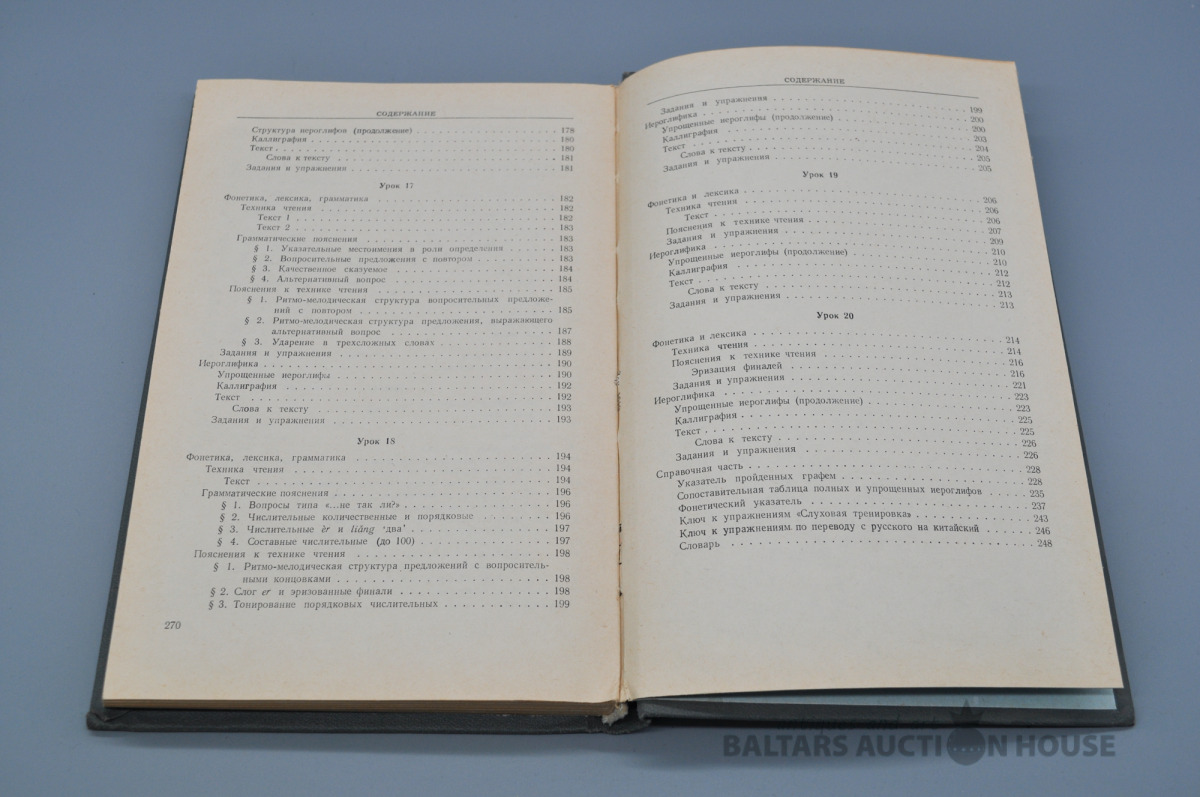 СОДЕРЖАНИЕ
Структура иероглифов (продолжение) . . . 178
Каллиграфия . . . 180
Текст . . . 180
Слова к тексту . . . 181
Задания и упражнения . . . 181
Урок 17
Фонетика, лексика, грамматика . . . 182
Техника чтения . . . 182
Текст 1 . . . 182
Текст 2 . . . 183
Грамматические пояснения . . . 183
§ 1. Указательные местоимения в роли определения . . . 183
§ 2. Вопросительные предложения с повтором . . . 183
§ 3. Качественное сказуемое . . . 184
§ 4. Альтернативный вопрос . . . 184
Пояснения к технике чтения . . . 185
§ 1. Ритмо-мелодическая структура вопросительных предложе-
ний с повтором . . . 185
§ 2. Ритмо-мелодическая структура предложения, выражающего
альтернативный вопрос . . . 187
§ 3. Ударение в трехсложных словах . . . 188
Задания и упражнения . . . 189
Иероглифика . . . 190
Упрощенные иероглифы . . . 190
Каллиграфия . . . 192
Текст . . . 192
Слова к тексту . . . 193
Задания и упражнения . . . 193
Урок 18
Фонетика, лексика, грамматика . . . 194
Техника чтения . . . 194
Текст . . . 194
Грамматические пояснения . . . 196
§ 1. Вопросы типа «...не так ли?» . . . 196
§ 2. Числительные количественные и порядковые . . . 196
§ 3. Числительные èr и liǎng ‘два’ . . . 197
§ 4. Составные числительные (до 100) . . . 197
Пояснения к технике чтения . . . 198
§ 1. Ритмо-мелодическая структура предложений с вопроситель-
ными концовками . . . 198
§ 2. Слог er и эризованные финали . . . 198
§ 3. Тонирование порядковых числительных . . . 199
270
СОДЕРЖАНИЕ
Задания и упражнения . . . 199
Иероглифика . . . 200
Упрощенные иероглифы (продолжение) . . . 200
Каллиграфия . . . 203
Текст . . . 204
Слова к тексту . . . 205
Задания и упражнения . . . 205
Урок 19
Фонетика и лексика . . . 206
Техника чтения . . . 206
Текст . . . 206
Пояснения к технике чтения . . . 207
Задания и упражнения . . . 209
Иероглифика . . . 210
Упрощенные иероглифы (продолжение) . . . 210
Каллиграфия . . . 212
Текст . . . 212
Слова к тексту . . . 213
Задания и упражнения . . . 213
Урок 20
Фонетика и лексика . . . 214
Техника чтения . . . 214
Пояснения к технике чтения . . . 216
Эризация финалей . . . 216
Задания и упражнения . . . 221
Иероглифика . . . 223
Упрощенные иероглифы (продолжение) . . . 223
Каллиграфия . . . 225
Текст . . . 225
Слова к тексту . . . 226
Задания и упражнения . . . 226
Справочная часть . . . 228
Указатель пройденных графем . . . 228
Сопоставительная таблица полных и упрощенных иероглифов . . . 235
Фонетический указатель . . . 237
Ключ к упражнениям «Слуховая тренировка» . . . 243
Ключ к упражнениям по переводу с русского на китайский . . . 246
Словарь . . . 248
BALTARS AUCTION HOUSE